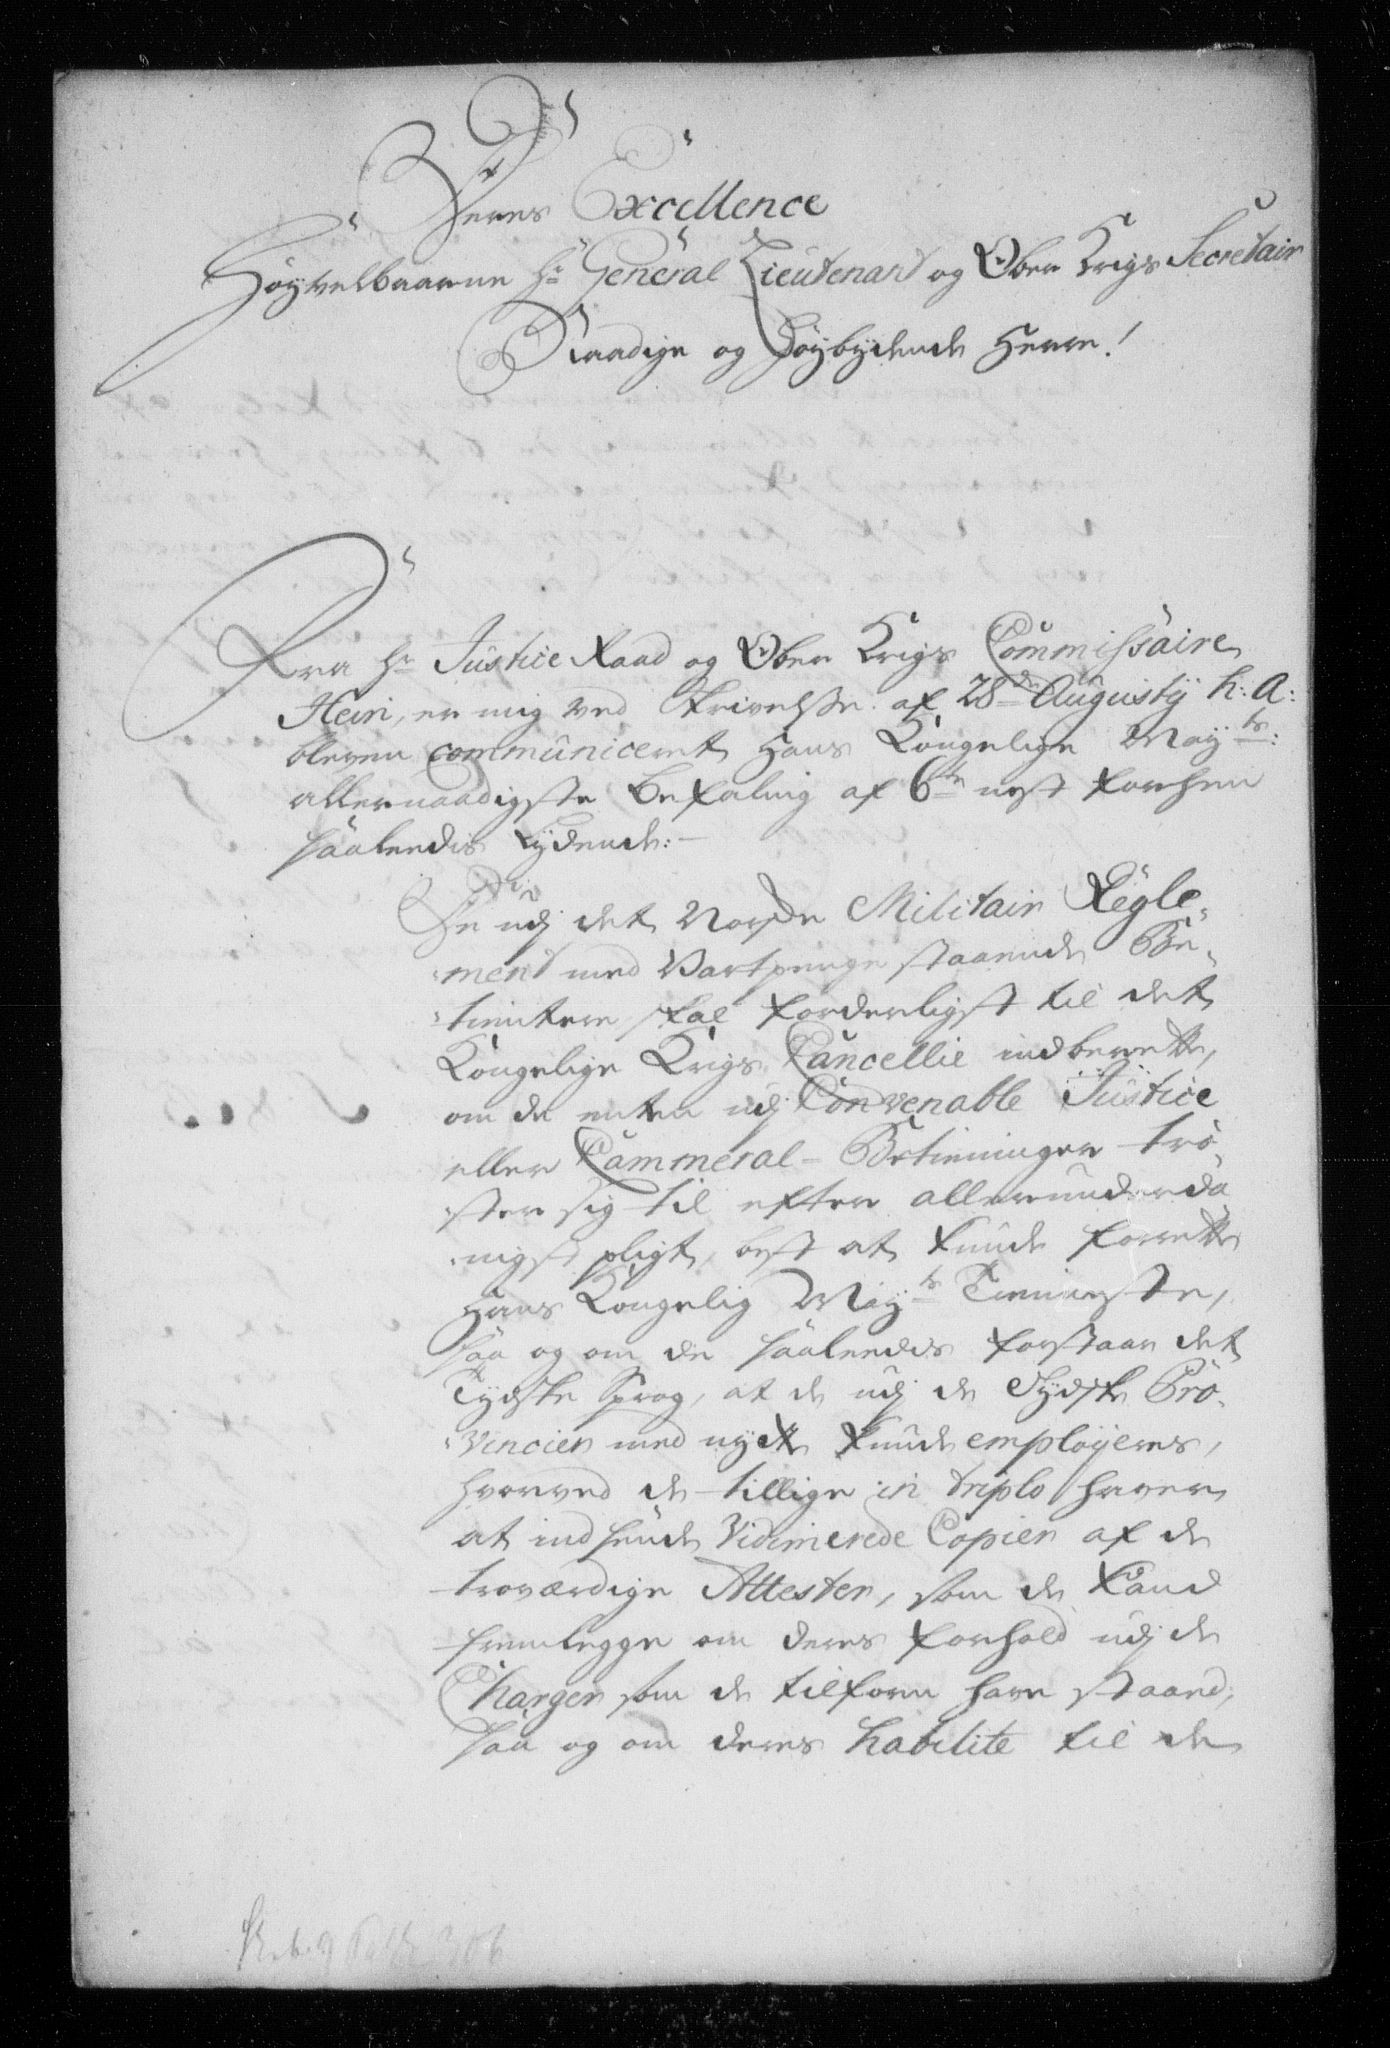 Deres Excellence
Høyvelbaarne Hr General Lieutenant og Ober Krigs Secretair
Naadige og Høybydende Herre!
Fra Hr Justice Raad og Ober Krigs Commissaire
Hein, er mig ved Skrivelse af 28de Augustij h: a:
bleven communiceret Hans Kongelige Mayts:
allernaadigste Befaling af 6te nest forhen
saaleedis Lydende:-
De udj det Norske Militair Regle-
ment med Vartpenge staaende Be-
tienter skal forderligst til det
Kongelige Krigs Cancellie indberette,
om de enten udj Convenable Justice
eller Cammeral-Betieninger trø-
ster sig til efter allerunderda
nigst pligt, best at kunde forrette
Hans Kongelig Mayts Tienneste,
saa og om de saaleedis forstaar det
Tydske Sprog, at de udj de Tydske Pro-
vincier med nytte kunde employeres,
hvorved de tillige in triplo haver
at indsende Vidimerede Copier af de
troværdige Attester, som de kand
fremlegge om deres forhold udj de
Charger som de tilforn have staaed,
saa og om deres habilite til de